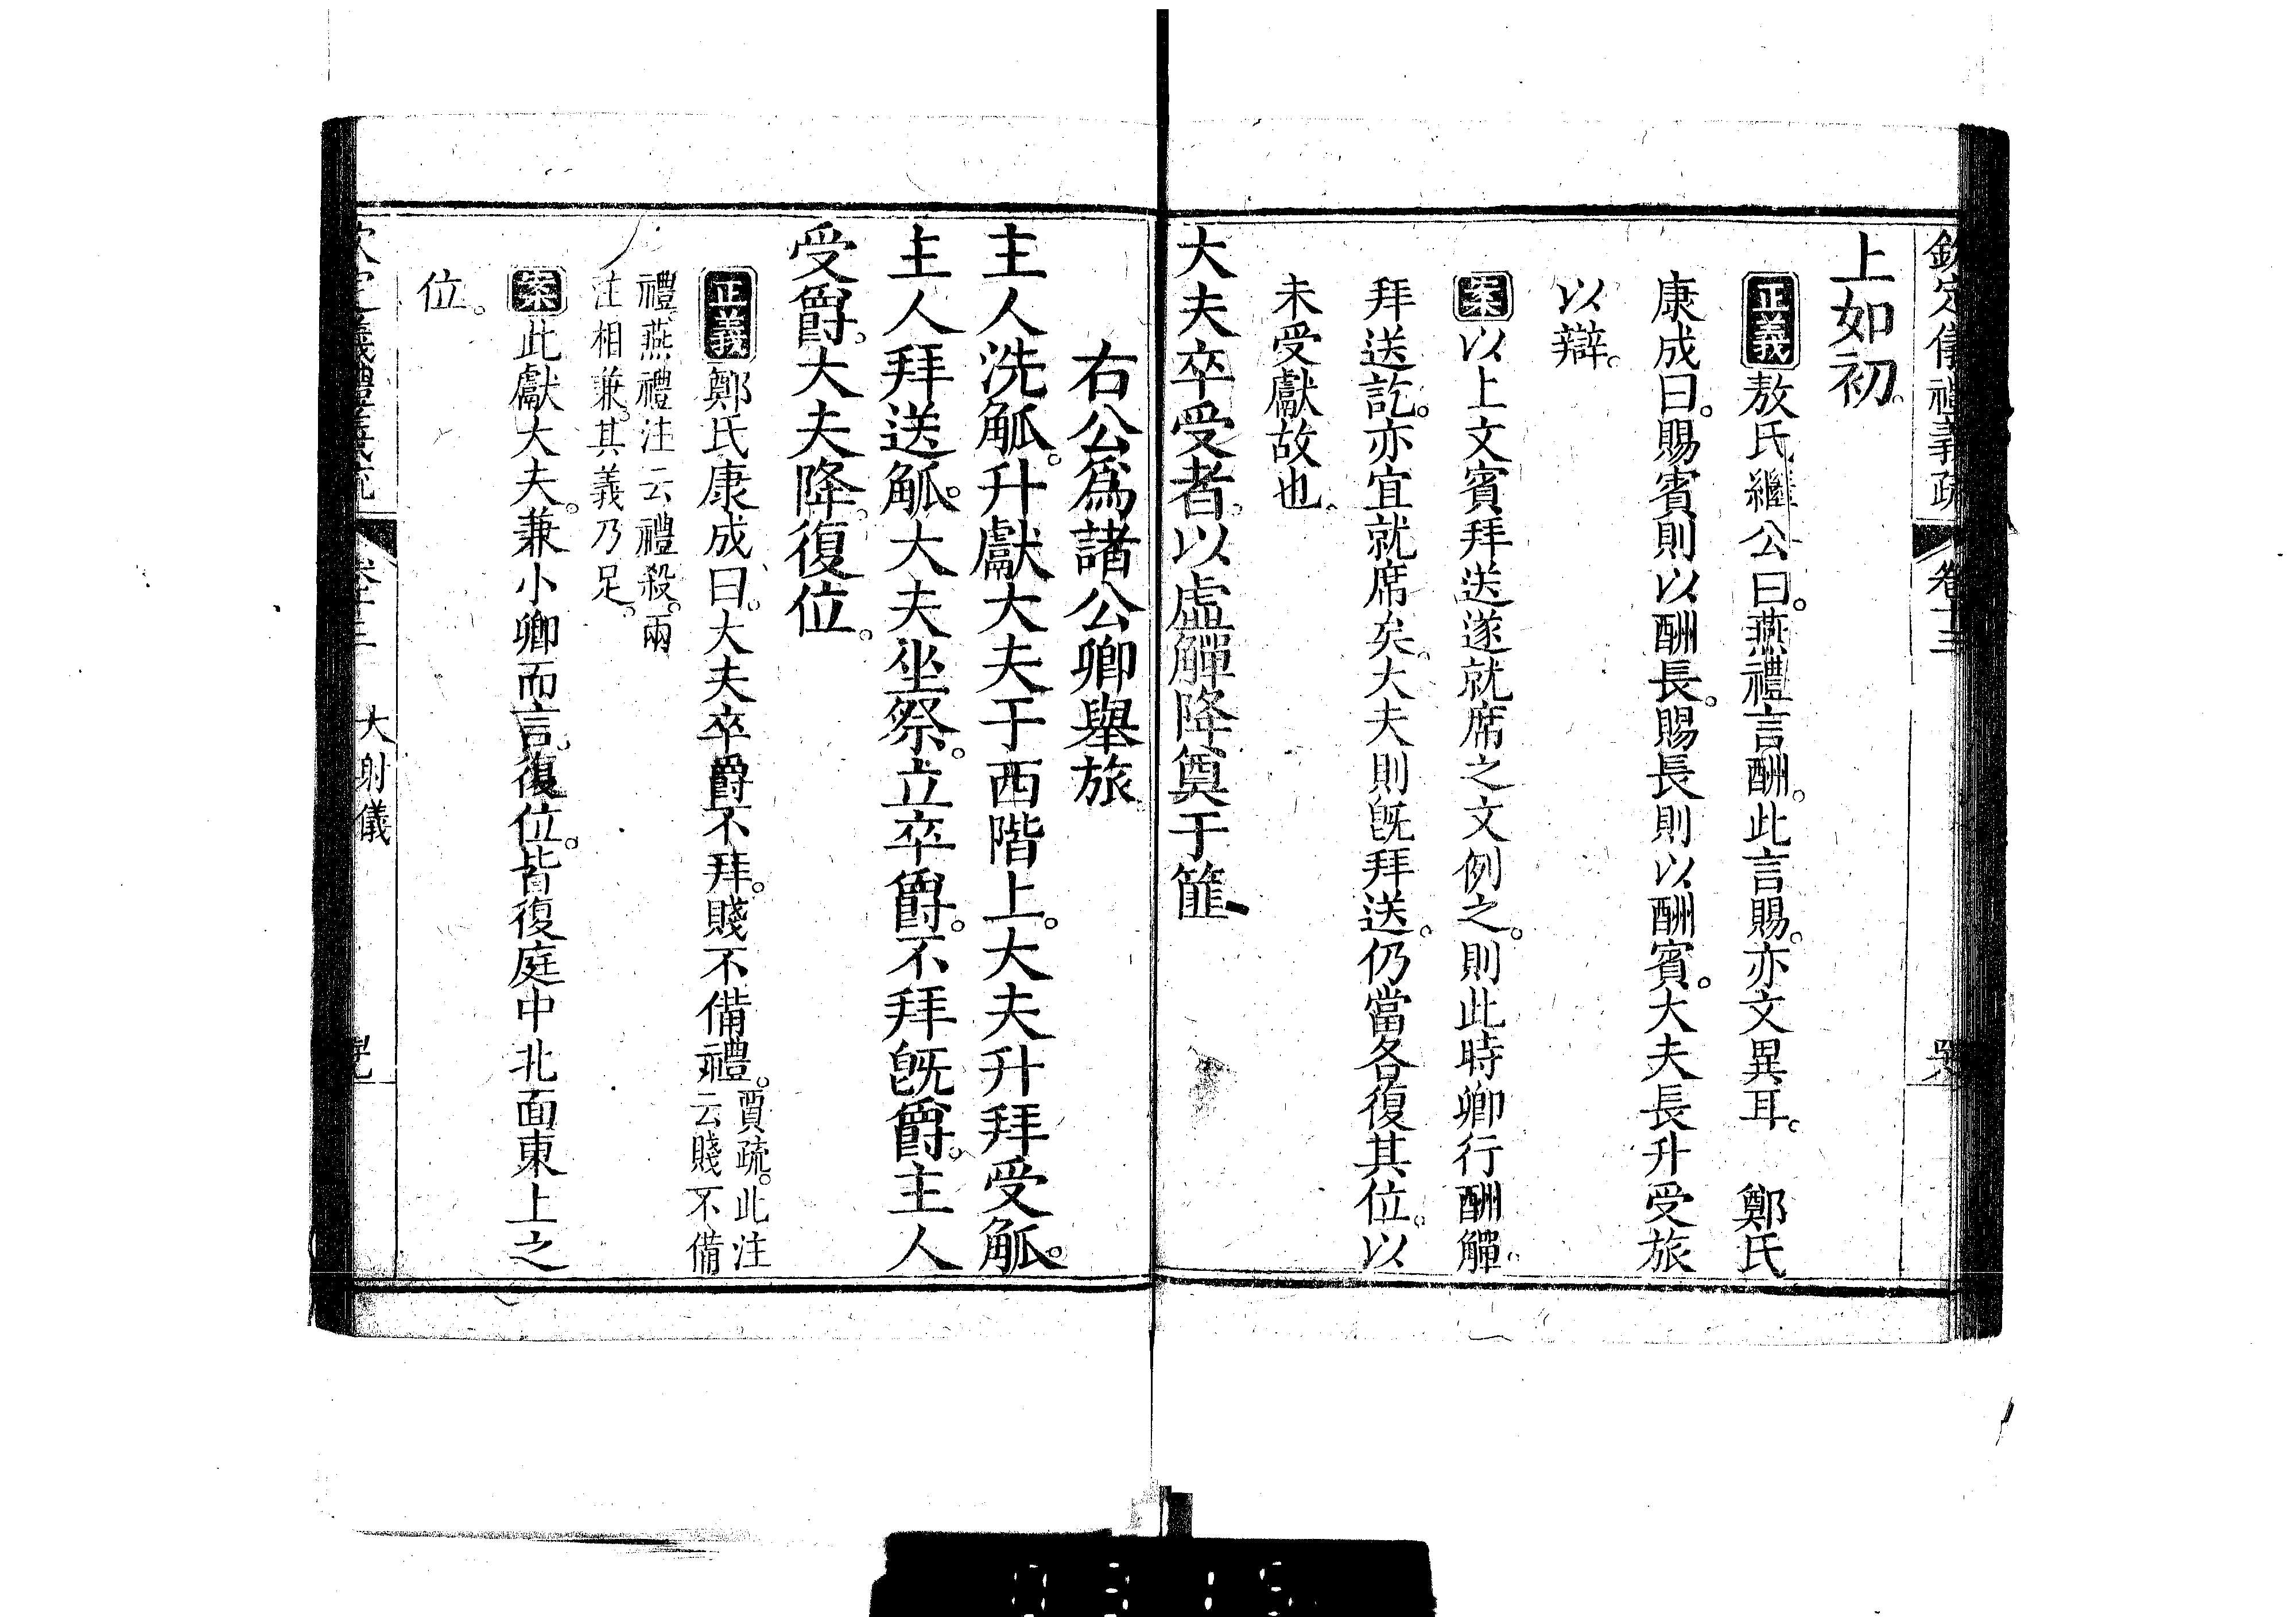 欽定儀禮義疏 卷十三
上如初。
正義敖氏繼公曰。燕禮言酬。此言賜。亦文異耳。 鄭氏
康成曰。賜賓則以酬長。賜長則以酬賓。大夫長升受旅
以辯。
案以上文賓拜送遂就席之文例之。則此時卿行酬觶。
拜送訖。亦宜就席矣。大夫則旣拜送。仍當各復其位。以
未受獻故也。
大夫卒受者。以虛觶降奠于篚。
右公爲諸公卿舉旅
主人洗觚。升獻大夫于西階上。大夫升拜受觚。
主人拜送觚。大夫坐祭。立卒爵。不拜旣爵。主人
受爵。大夫降。復位。
正義鄭氏康成曰。大夫卒爵不拜。賤不備禮。賈疏。此注
云賤不備
禮。燕禮注云禮殺。兩
注相兼。其義乃足。
案此獻大夫。兼小卿而言。復位。皆復庭中北面東上之
位。
欽定儀禮義疏 卷十三 大射儀